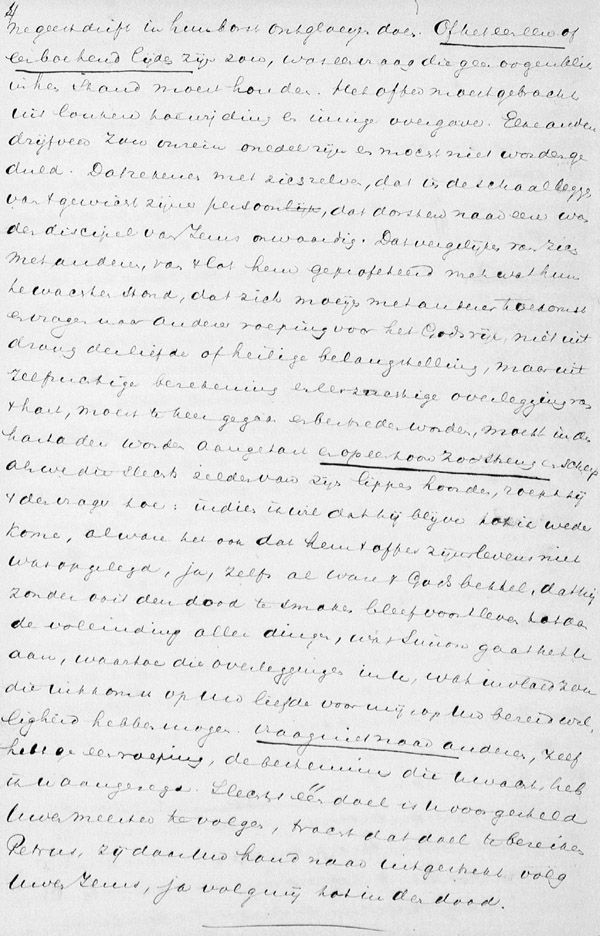 4
ne geestdrift in hun borst ontgloeijen doen. Of het eer een of
een bochend lijden zijn zou, was een vraag die geen oogenblik
in het stand moest houden. Het offer moest gebracht
uit loutere toewijding en innige overgave. Elke andere
drijfveer zou onrein onedel zijn en moest niet worden ge
duld. Dat rekenen met zichzelven, dat in de schaal leggen
van 't gewicht zijner persoon, dat dorsten naar eer was
den discipel van Jezus onwaardig. Dat vergelijken van zich
met anderen, van 't lot hem geprofeteerd met wat hun
te wachten stond, dat zich moeijen met anderer toekomst
en vragen naar anderer roeping voor het Godsrijk, niet uit
drang der liefde of heilige belangstelling, maar uit
zelfzuchtige berekening en eerzuchtige overlegging van
't hart, moest te keer gegaan en bestreden worden, moest in den
hartader worden aangetast en op een toon zoo streng en scherp
als we die slechts zelden van zijn lippen hoorden, roept hij
't de vrage toe: indien ik wil dat hij blijve tot ik weder
kome, al ware het ook dat hem 't offer zijns levens niet
was opgelegd, ja, zelfs al ware 't Gods bestel, dat hij
zonder ooit den dood te smaken bleef voortleven tot aan
de voleinding aller dingen, wat Simon gaat het u
aan, waartoe die overleggingen in u, wat invloed zou
die uitkomst op uw liefde voor mij op uw bereidwil
ligheid hebben mogen. Vraag niet naar anderen, zelf
hebt ge een roeping, de bestemming die u wacht, heb
ik u aangezegd. Slechts één doel is u voorgesteld
uwen meester te volgen, tracht dat doel te bereiken
Petrus, zij daar uw hand naar uitgestrekt volg
uwen Jezus, ja volg mij tot in den dood.